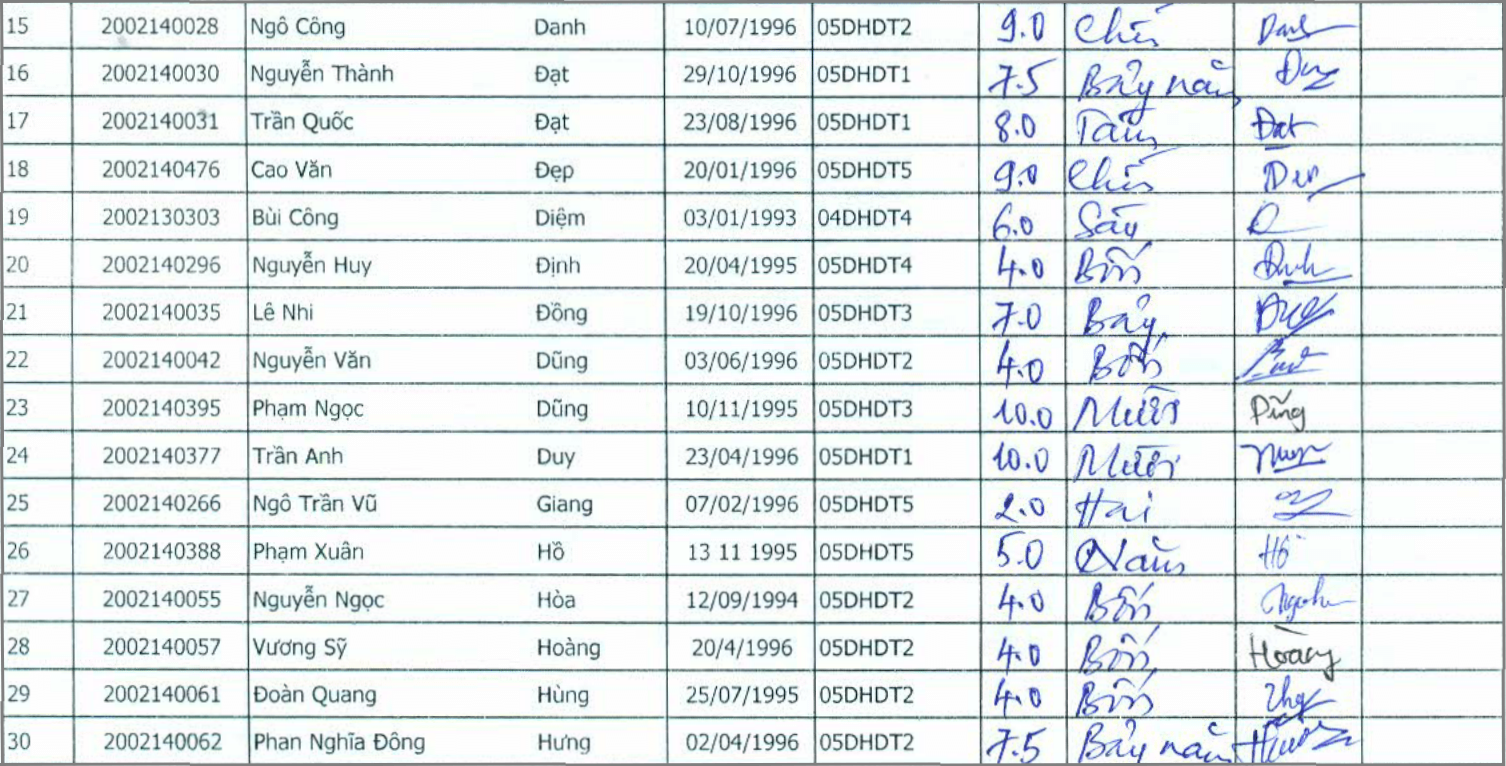 15 2002140028 Ngô Công Danh 10/07/1996 05DHDT2 9.0 Chín Danh
16 2002140030 Nguyễn Thành Đạt 29/10/1996 05DHDT1 7.5 Bảy năm
17 2002140031 Trần Quốc Đạt 23/08/1996 05DHDT1 8.0 Tám Đat
18 2002140476 Cao Văn Đẹp 20/01/1996 05DHDT5 9.0 Chín
19 2002130303 Bùi Công Diệm 03/01/1993 04DHDT4 6.0 Sáu
20 2002140296 Nguyễn Huy Định 20/04/1995 05DHDT4 4.0 Bốn Đinh
21 2002140035 Lê Nhi Đồng 19/10/1996 05DHDT3 7.0 Bảy
22 2002140042 Nguyễn Văn Dũng 03/06/1996 05DHDT2 4.0 Bốn
23 2002140395 Phạm Ngọc Dũng 10/11/1995 05DHDT3 10.0 Mười Dũng
24 2002140377 Trần Anh Duy 23/04/1996 05DHDT1 10.0 Mười
25 2002140266 Ngô Trần Vũ Giang 07/02/1996 05DHDT5 2.0 Hai
26 2002140388 Phạm Xuân Hồ 13 11 1995 05DHDT5 5.0 Năm Hồ
27 2002140055 Nguyễn Ngọc Hòa 12/09/1994 05DHDT2 4.0 Bốn
28 2002140057 Vương Sỹ Hoàng 20/4/1996 05DHDT2 4.0 Bốn Hoàng
29 2002140061 Đoàn Quang Hùng 25/07/1995 05DHDT2 4.0 Bốn
30 2002140062 Phan Nghĩa Đông Hưng 02/04/1996 05DHDT2 7.5 Bảy năm